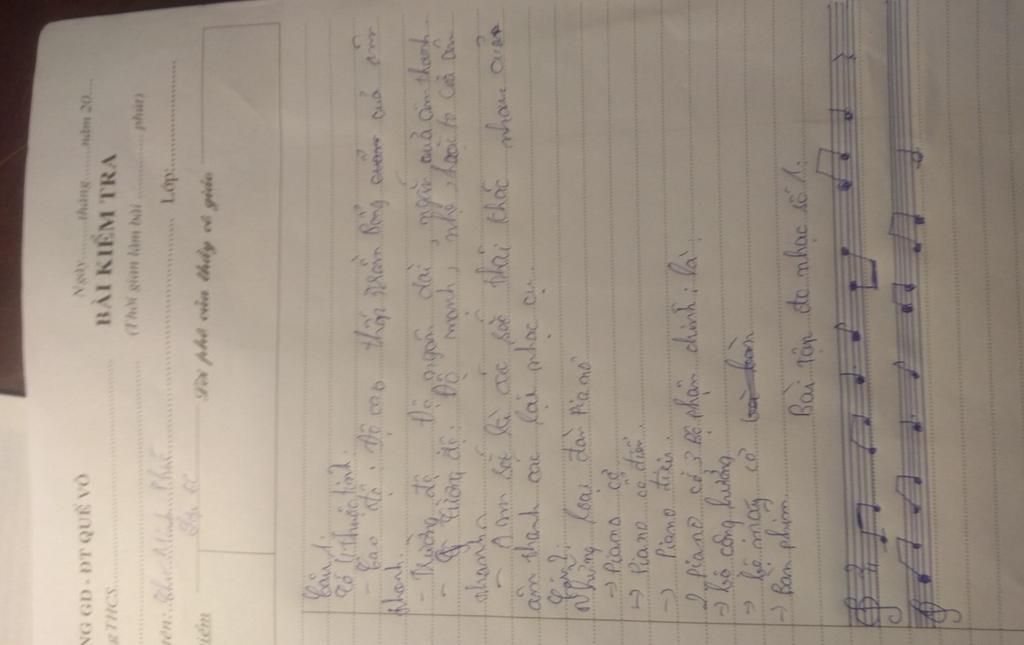 NG GD - ĐT QUẾ VÕ
Ngày.......tháng.......năm 20....
BÀI KIỂM TRA
(Thời gian làm bài ............ phút)
THCS
Lớp:
Minh
Lời phê của thầy cô giáo
Câu 1.
Có 4 thuộc tính.
- Cao độ: Độ cao thấp, trầm bổng của âm
thanh.
- Trường độ: Độ ngân dài, ngắn của âm thanh
- Cường độ: Độ mạnh, nhẹ, to của âm
thanh
- Âm sắc là các sắc thái khác nhau của
âm thanh các loại nhạc cụ.
Câu 2.
Những loại đàn Piano
-> Piano cơ.
-> Piano cổ điển.
-> Piano điện.
Piano có 3 bộ phận chính: là:
-> hộ cộng hưởng
-> bộ máy cơ
-> Bàn phím
Bài tập đọc nhạc số 1.